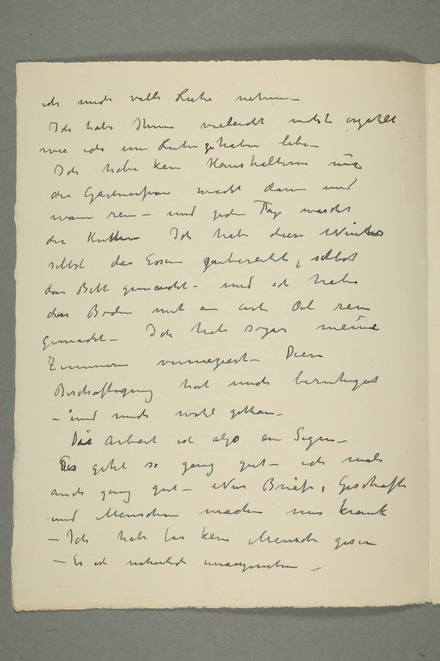 ich mich volle Ruhe nehmen –
Ich habe Ihnen vielleicht nicht erzählt
wie ich im leben –
Ich habe kein Haushälterin nur
die Gärtnersfrau macht dann und
wann rein – und jeden Tag wascht
die Ich habe diese Winter
selbst das Essen zubereitet, selbst
das Bett gemacht – und ich habe
das Boden mit Oel rein
gemacht – Ich habe sogar meine
Zimmern Diese
Beschäftigung hat mich beruhigt
– und mich wohl gethan –
Die Arbeit ist also ein Segen –
Es geht so ganz gut – ich male
auch ganz gut – Nur Briefe, Geschäfte
und Menschen machen mich krank
– Ich habe fast kein Mensch gesehen
– Es ist natürlich unangenehm –